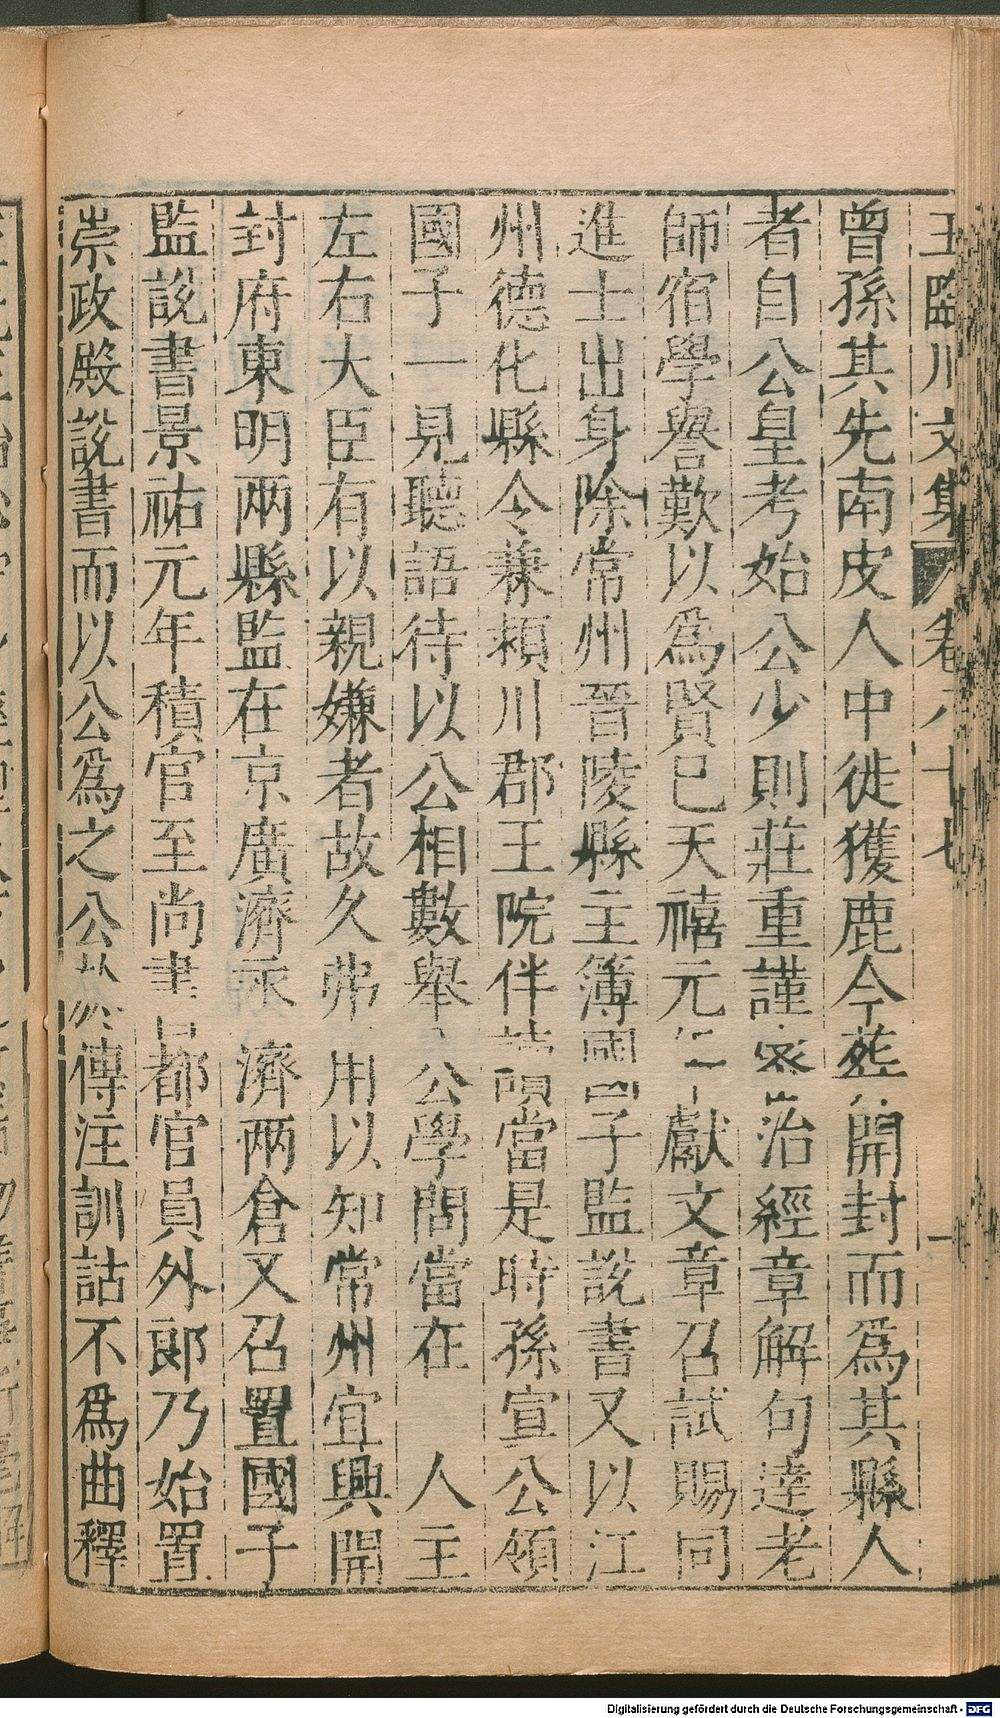 王臨川文集 卷八十七 一
曾孫其先南皮人中徙獲鹿今葬開封而爲其縣人
者自公皇考始公少則莊重謹密治經章解句達老
師宿學譽歎以爲賢已天禧元年獻文章召試賜同
進士出身除常州晉陵縣主簿國子監說書又以江
州德化縣令兼潁川郡王院伴讀當是時孫宣公領
國子一見聽語待以公相數舉公學問當在 人主
左右大臣有以親嫌者故久弗用以知常州宜興開
封府東明兩縣監在京廣濟永濟兩倉又召置國子
監說書景祐元年積官至尚書都官員外郎乃始置
崇政殿說書而以公爲之公於傳注訓詁不爲曲釋
Digitalisierung gefördert durch die Deutsche Forschungsgemeinschaft - DFG